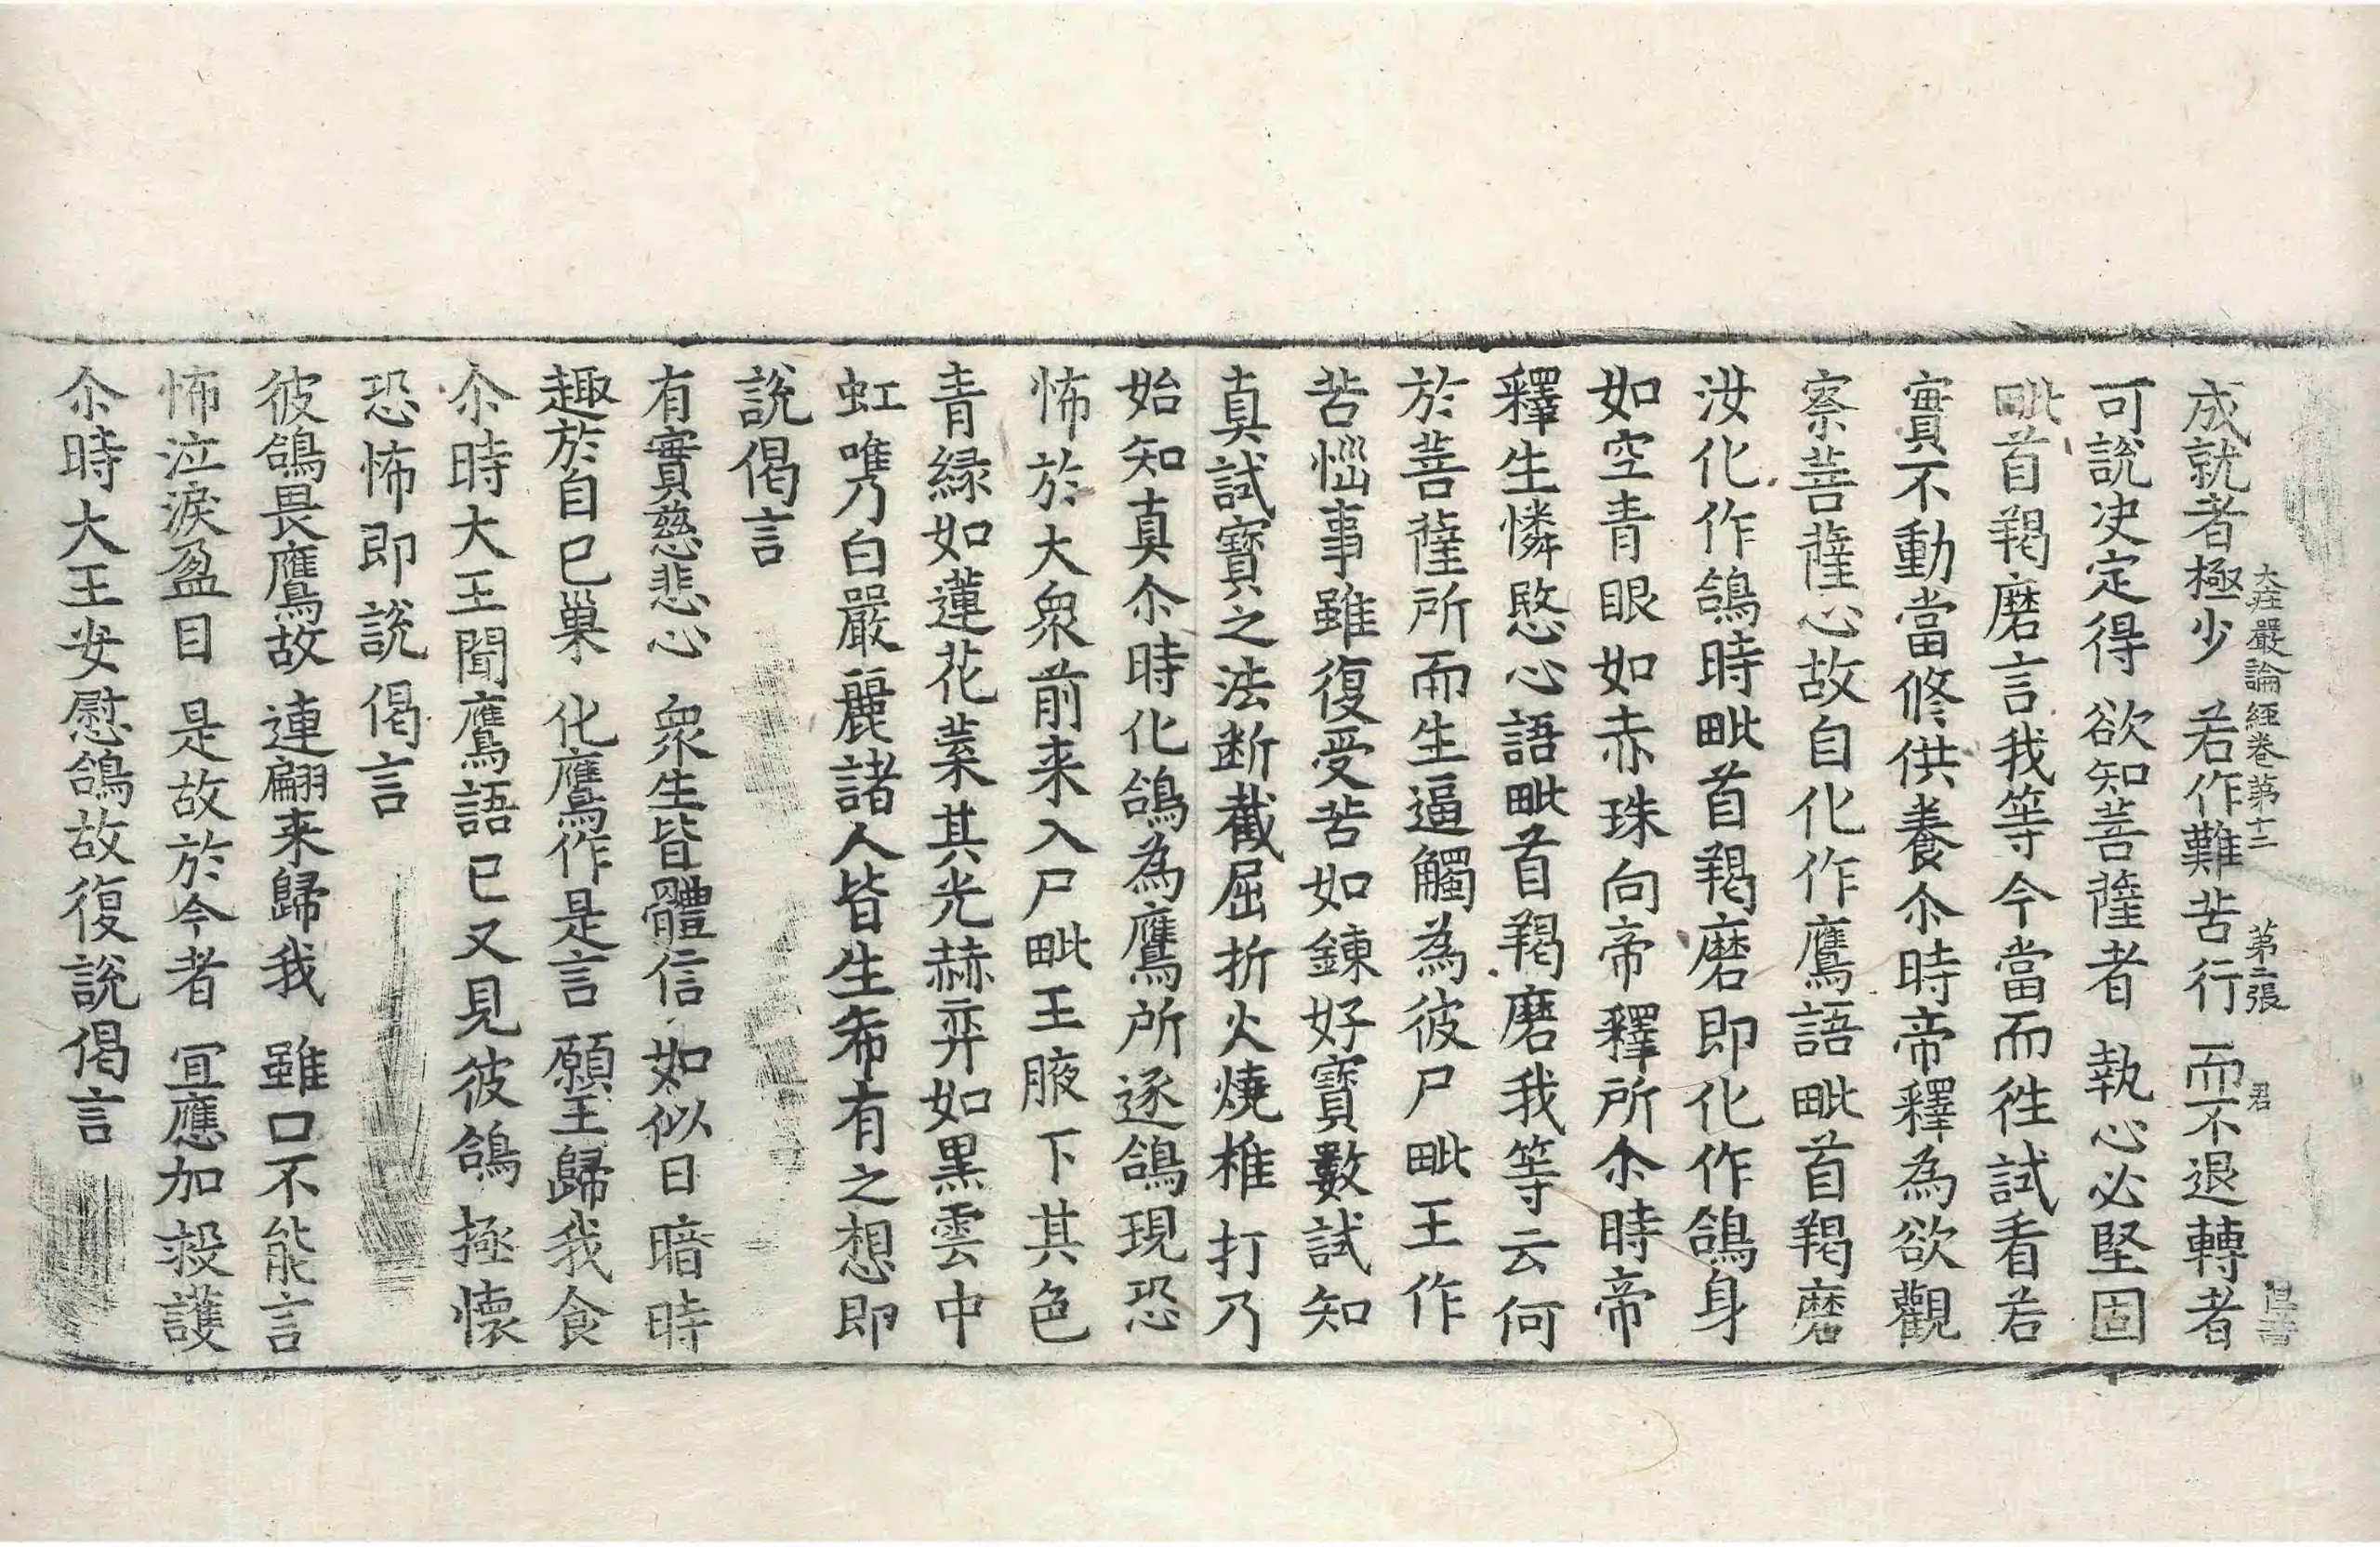 大莊嚴論經卷第十二 第二張 君
成就者極少 若作難苦行 而不退轉者
可說决定得 欲知菩薩者 執心必堅固
毗首羯磨言我等今當而徃試看若
實不動當修供養尒時帝釋為欲觀
察菩薩心故自化作鷹語毗首羯磨
汝化作鴿時毗首羯磨即化作鴿身
如空青眼如赤珠向帝釋所尒時帝
釋生憐愍心語毗首羯磨我等云何
於菩薩所而生逼觸為彼尸毗王作
苦惱事雖復受苦如鍊好寶數試知
真試寶之法断截屈折火燒椎打乃
始知真尒時化鴿為鷹所逐鴿現恐
怖於大衆前来入尸毗王腋下其色
青緑如蓮花葉其光赫弈如黑雲中
虹嶲乃白嚴麗諸人皆生希有之想即
說偈言
有實慈悲心 衆生皆體信 如似日暗時
趣於自巳巢 化鷹作是言 願王歸我食
尒時大王聞鷹語巳又見彼鴿極懷
恐怖即說偈言
彼鴿畏鷹故 連翩来歸我 雖口不能言
怖泣淚盈目 是故於今者 冝應加救護
尒時大王安慰鴿故復說偈言